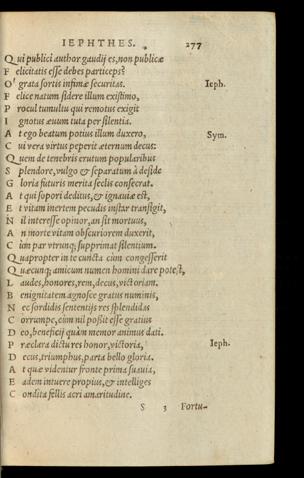 IEPHTHES. 277
Qui publici author gaudij es, non publicæ
Felicitatis esse debes particeps?
O' grata sortis infimæ securitas. Ieph.
Felice natum sidere illum existimo,
Procul tumultu qui remotus exigit
Ignotus æuum tuta per silentia.
At ego beatum potius illum duxero, Sym.
Cui vera virtus peperit æternum decus:
Quem de tenebris erutum popularibus
Splendore, vulgo & separatum à deside
Gloria futuris merita seclis consecrat.
At qui sopori deditus, & ignauiæ est,
Et vitam inertem pecudis instar transigit,
Nil interesse opinor, an sit mortuus,
An morte vitam obscuriorem duxerit,
Cùm par vtrunq; supprimat silentium.
Quapropter in te cuncta cùm congesserit
Quæcunq; amicum numen homini dare potest,
Laudes, honores, rem, decus, victoriam.
Benignitatem agnosce gratus numinis,
Nec sordidis sententijs res splendidas
Corrumpe, cùm nil possit esse gratius
Deo, beneficij quàm memor animus dati.
Præclara dictu res honor, victoria, Ieph.
Decus, triumphus, parta bello gloria.
At quæ videntur fronte prima suauia,
Eadem intuere propius, & intelliges
Condita fellis acri amaritudine.
S 3 Fortu-